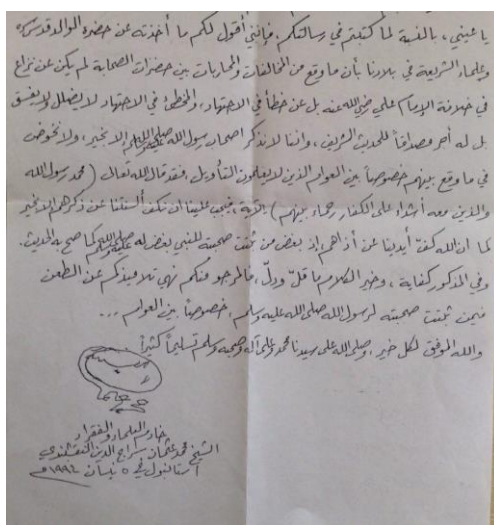 يا عيني، بالنسبة لما كتبتم في رسالتكم، فإنني أقول لكم ما أخذته عن حضرة الوالد قدس سره
وعلماء الشريعة في بلادنا بأن ما وقع من المخالفات والمحاربات بين حضرات الصحابة لم يكن عن نزاع
في خلافة الإمام علي رضي الله عنه بل عن خطأ في الاجتهاد، والمخطئ في الاجتهاد لا يضلل ولا يفسق
بل له أجر مصداقاً للحديث الشريف، واننا لا نذكر أصحاب رسول الله صلى الله عليه وسلم إلا بخير، ولا نخوض
في ما وقع بينهم خصوصاً بين العوام الذين لا يعلمون التأويل، فقد قال الله تعالى (محمد رسول الله
والذين معه أشداء على الكفار رحماء بينهم) الآية، فيجب علينا ان نكف ألسنتنا عن ذكرهم إلا بخير
كما ان الله كفّ أيدينا عن أذاهم إذ بغض من ثبتت صحبته للنبي بغض له صلى الله عليه وسلم كما صح به الحديث.
وفي المذكور كفاية، وخير الكلام ما قلّ ودلّ، فالمرجو منكم نهي تلاميذكم عن الطعن
فيمن ثبتت صحبته لرسول الله صلى الله عليه وسلم، خصوصاً بين العوام ...
والله الموفق لكل خير، وصلى الله على سيدنا محمد وعلى آله وصحبه وسلم تسليماً كثيراً.
خادم العلماء والفقراء
الشيخ محمد عثمان سراج الدين النقشبندي
استانبول في ٥ نيسان ١٩٩٤ م